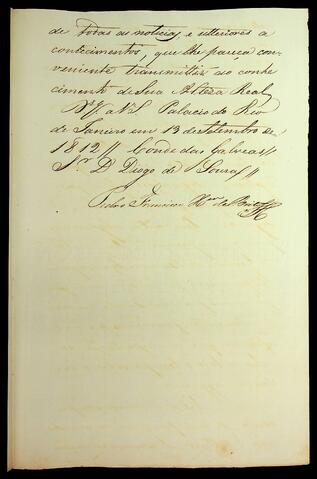 de todas as noticias, e ulteriores a
contecimentos, que lhe pareça con
veniente transmittir ao conhe
cimento de Sua Alteza Real
a V.S. Palacio do Rio
de Janeiro em 13 de Setembro de
1812 // Conde das Galveas //
Sr. D Diogo de Souza //
Pedro Francisco de Brito